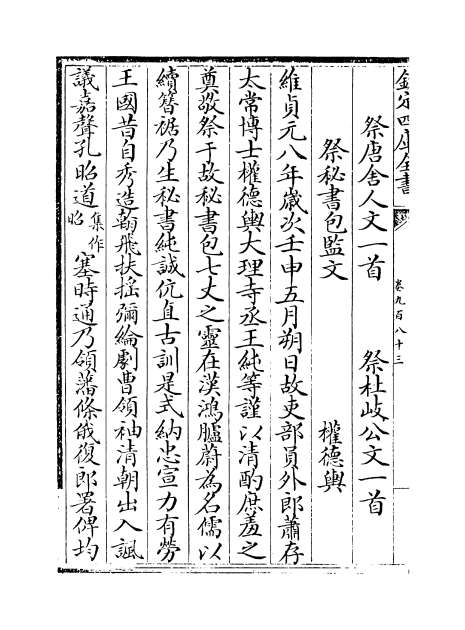 欽定四庫全書
卷九百八十三
祭唐舍人文一首
祭杜岐公文一首
祭秘書包監文
權德輿
維貞元八年歲次壬申五月朔日故吏部員外郎蕭存
太常博士權德輿大理寺丞王純等謹以清酌庶羞之
奠敬祭于故秘書包七丈之靈在漢鴻臚蔚為名儒以
續簪裾乃生秘書純誠伉直古訓是式納忠宣力有勞
王國昔自秀造翰飛扶摇彌綸劇曹領袖清朝出入諷
議嘉聲孔昭道集作昭塞時通乃領藩條俄復郎署俾均